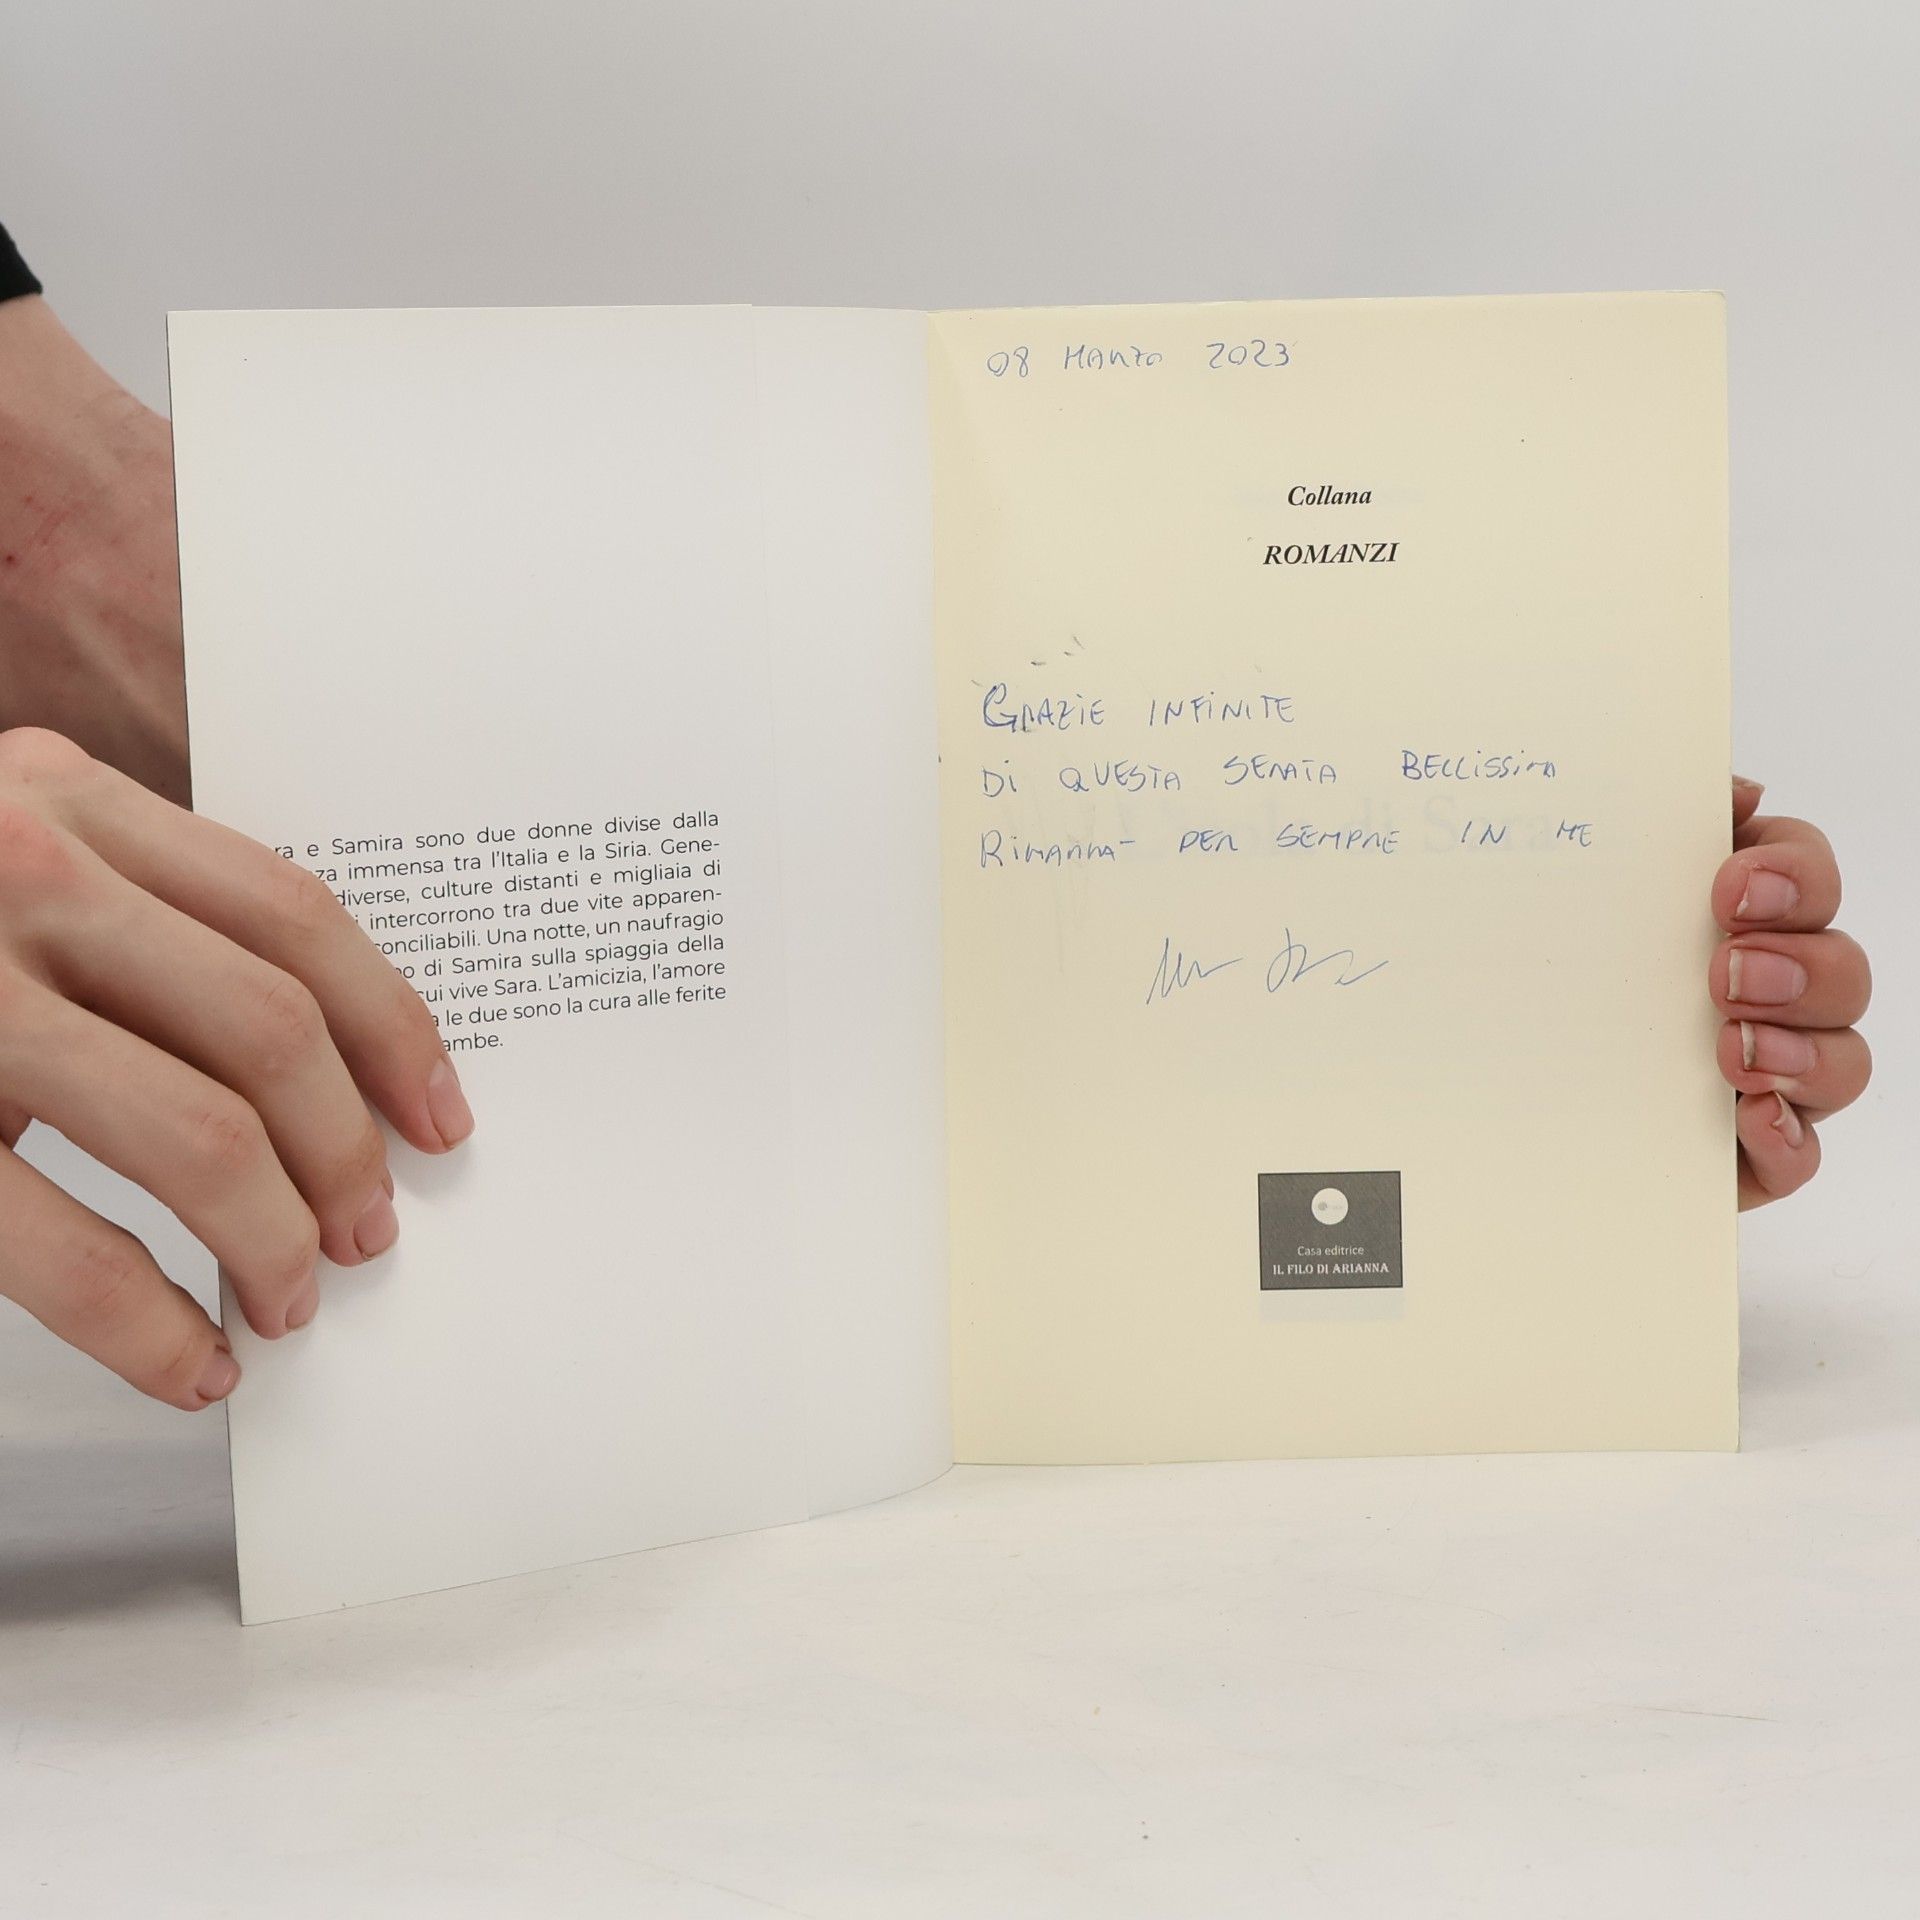 ra e Samira sono due donne divise dalla
za immensa tra l'Italia e la Siria. Gene-
diverse, culture distanti e migliaia di
i intercorrono tra due vite apparen-
conciliabili. Una notte, un naufragio
po di Samira sulla spiaggia della
cui vive Sara. L'amicizia, l'amore
a le due sono la cura alle ferite
ambe.
08 MARZO 2023
Collana
ROMANZI
GRAZIE INFINITE
DI QUESTA SERATA BELLISSIMA
RIMARRA- PER SEMPRE IN ME
Casa editrice
IL FILO DI ARIANNA